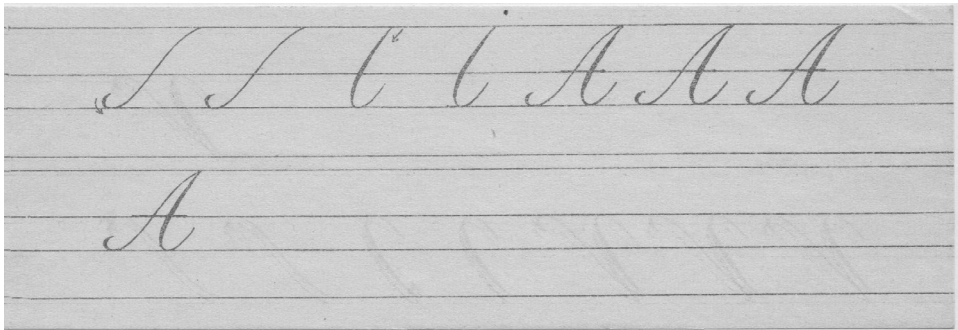 A A A
A